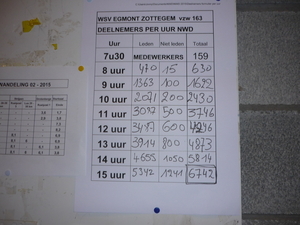 WSV EGMONT ZOTTEGEM vzw 163
DEELNEMERS PER UUR NWD
Uur Leden Niet leden Totaal
7u30 MEDEWERKERS 159
8 uur 470 15 630
9 uur 1363 100 1622
10 uur 2071 200 2430
11 uur 3092 500 3746
12 uur 3417 600 4246
13 uur 3914 800 4873
14 uur 4655 1050 5814
15 uur 5342 1241 6742
WANDELING 02 - 2015